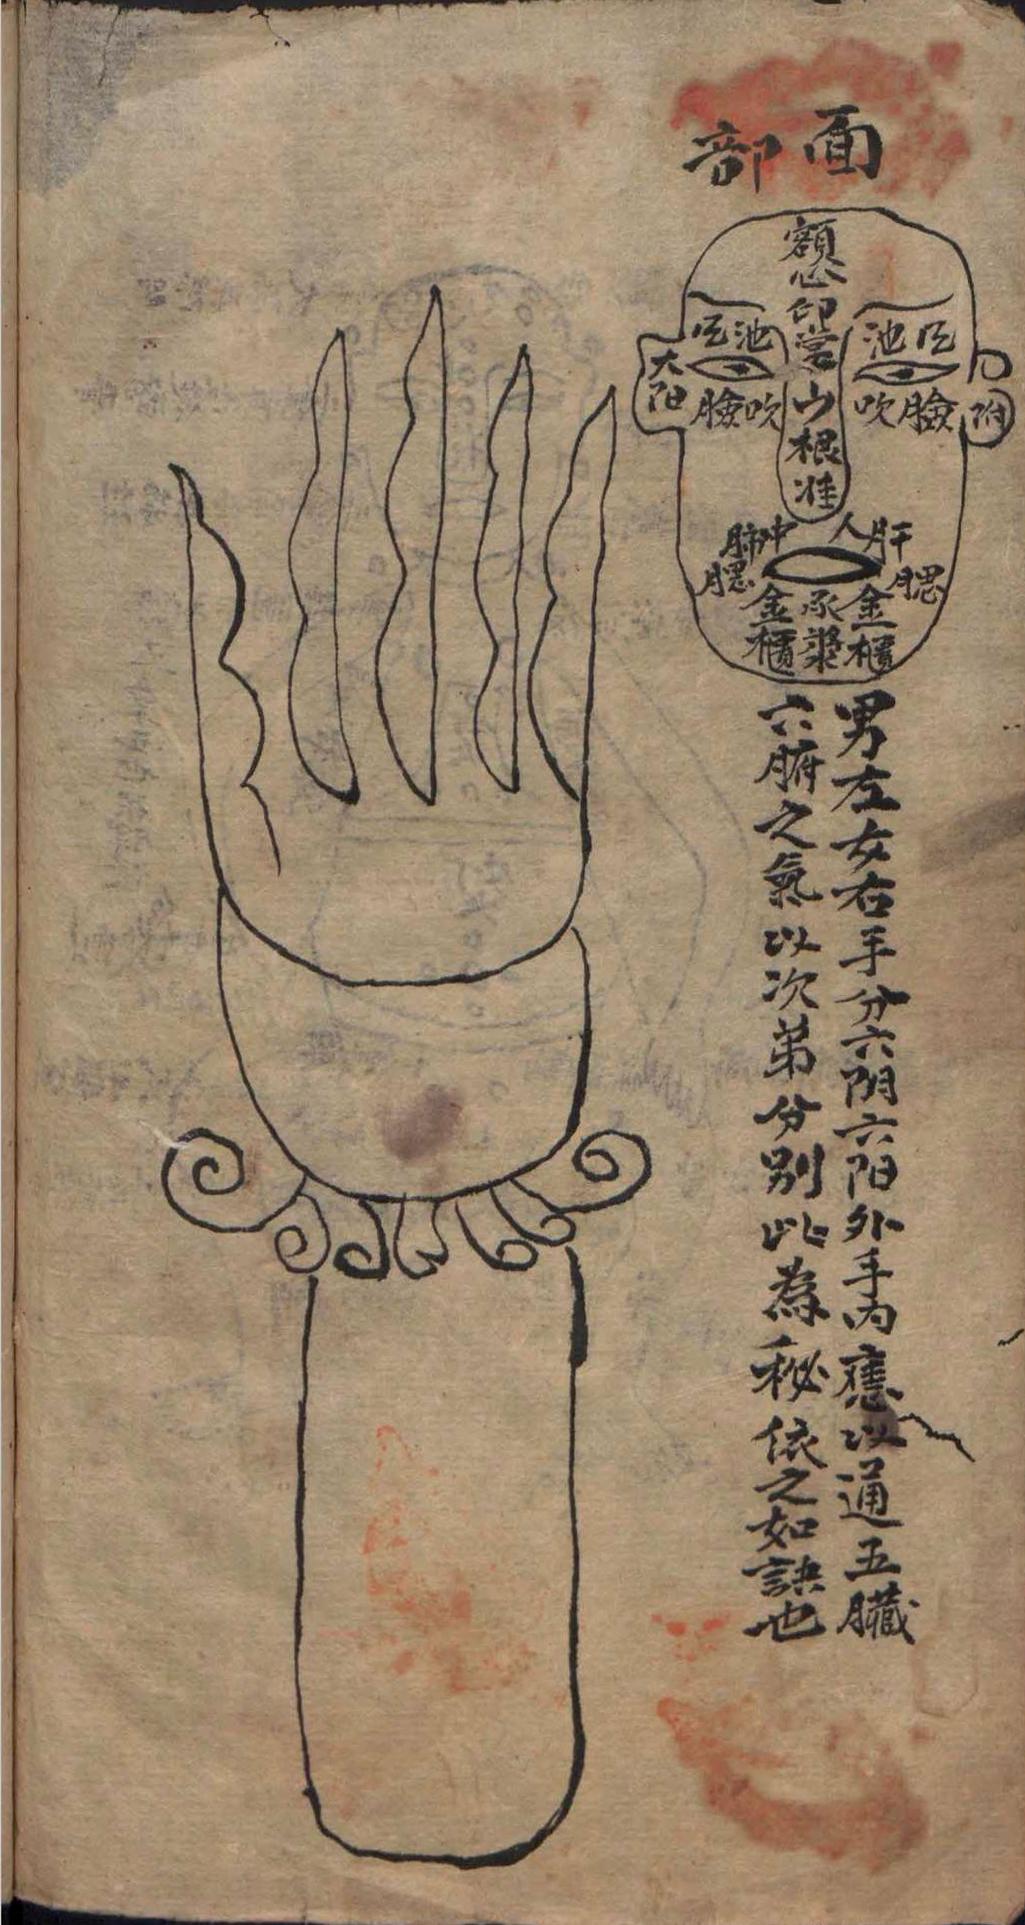 面部
額心
印堂
山根
准
池
池
太阳
臉
吹
吹
臉
附
肺
中
人
肝
腮
腮
金櫃
承漿
金櫃
男左女右手分六阴六阳外手内應以通五臟
六腑之氣以次第分別此為秘依之如訣也